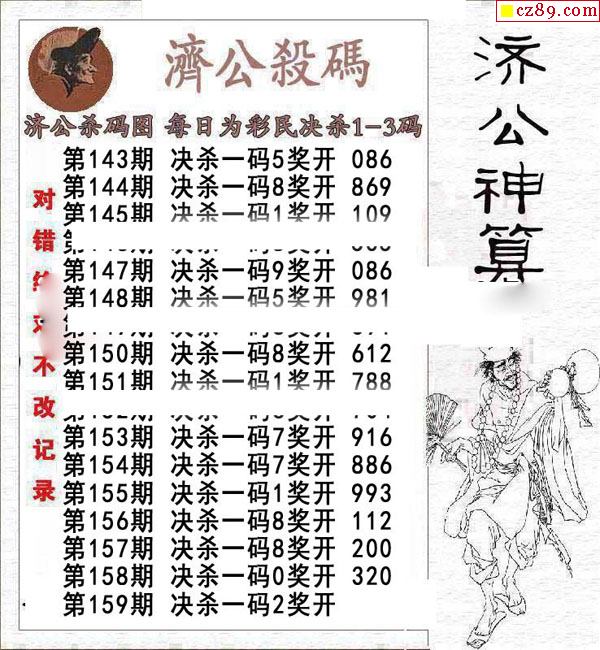 cz89.com
濟公殺碼
济公杀码图 每日为彩民决杀1-3码
第143期 决杀一码5奖开 086
第144期 决杀一码8奖开 869
第145期 决杀一码1奖开 109
第147期 决杀一码9奖开 086
第148期 决杀一码5奖开 981
第150期 决杀一码8奖开 612
第151期 决杀一码1奖开 788
第153期 决杀一码7奖开 916
第154期 决杀一码7奖开 886
第155期 决杀一码1奖开 993
第156期 决杀一码8奖开 112
第157期 决杀一码8奖开 200
第158期 决杀一码0奖开 320
第159期 决杀一码2奖开
对错 对不改记录
济公神算